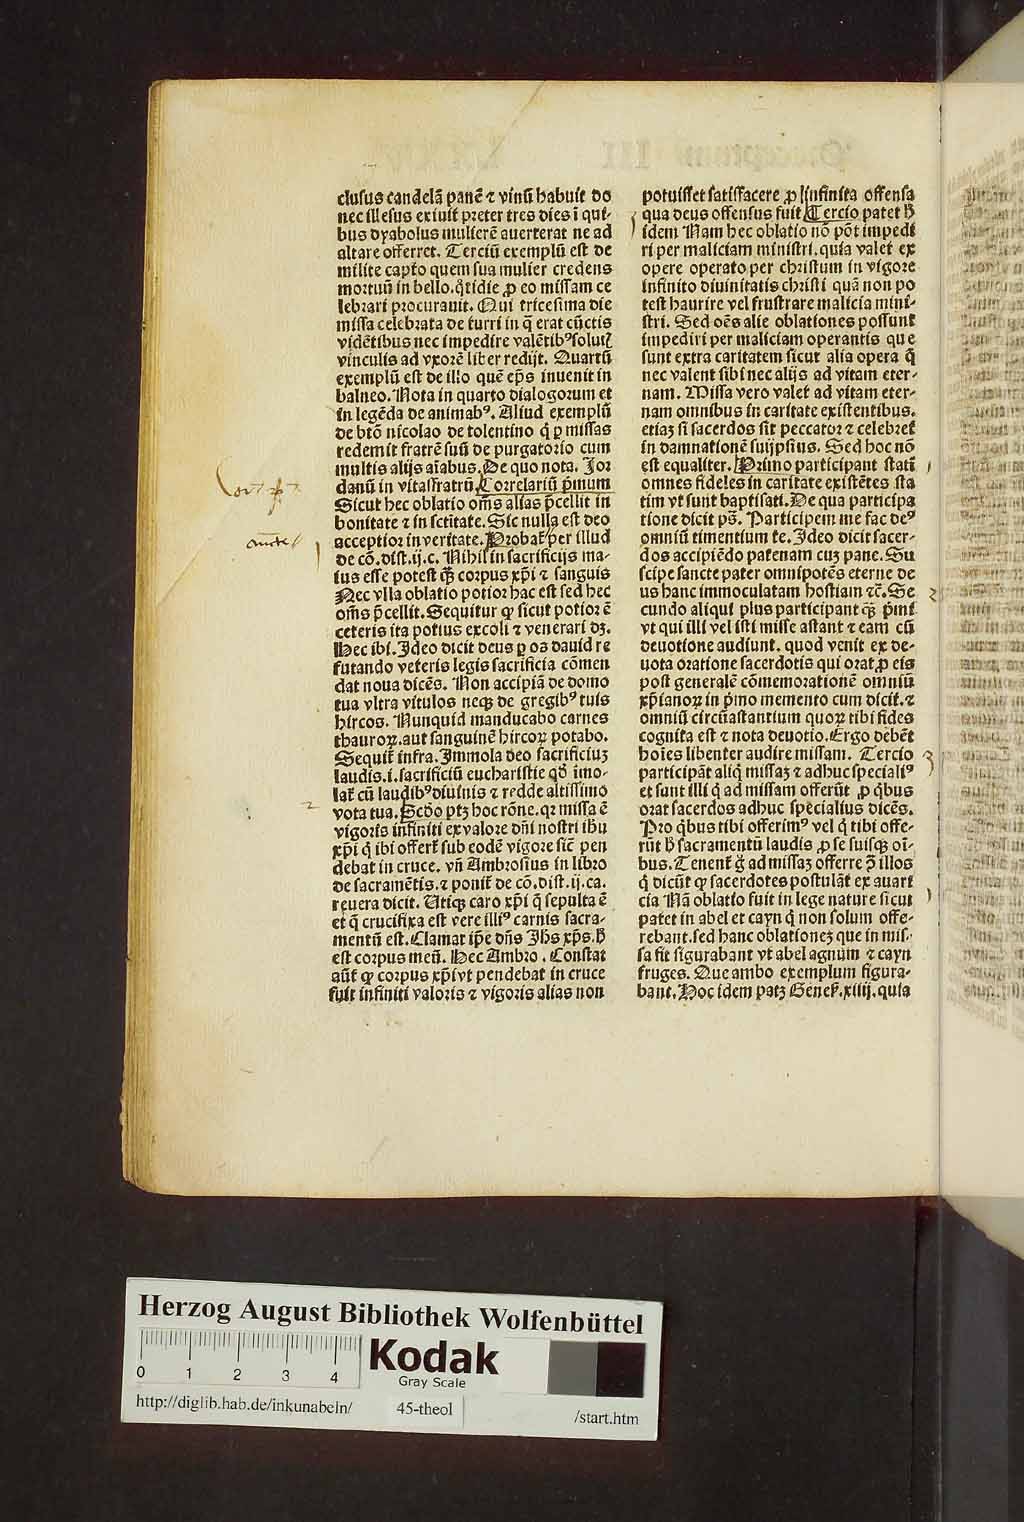 clusus candelã panẽ ⁊ vinũ habuit do
nec illesus exiuit preter tres dies ĩ qui-
bus dyabolus mulierẽ auerterat ne ad
altare offerret. Terciũ exemplũ est de
milite capto quem sua mulier credens
mortuũ in bello. q̃tidie ꝓ eo missam ce
lebrari procurauit. Qui tricesima die
missa celebrata de turri in q̃ erat cũctis
vidẽtibus nec impedire valẽtibꝰ solut᷒
vinculis ad vxorẽ liber redijt. Quartũ
exemplũ est de illo quẽ ep̃s inuenit in
balneo. Nota in quarto dialogorum et
in legẽda de animabꝰ. Aliud exemplũ
de btõ nicolao de tolentino q̇ ꝑ missas
redemit fratrẽ suũ de purgatorio cum
multis alijs aĩabus. De quo nota. Jor
danũ in vitasfratrũ. Correlariũ p̃mum
Sicut hec oblatio oẽ̃s alias p̃cellit in
bonitate ⁊ in sctitate. Sic nulla est deo
acceptior in veritate. Probat᷑ per illud
de cõ. dist. ij. c. Nihil in sacrificijs ma-
ius esse potest q̃ꝫ corpus xp̃i ⁊ sanguis
Nec vlla oblatio potior hac est sed hec
om̃s p̃cellit. Sequitur ꝙ sicut potior ẽ
ceteris ita potius excoli ⁊ venerari dꝫ.
Hec ibi. Ideo dicit deus ꝑ os dauid re
futando veteris legis sacrificia cõmen
dat noua dicẽs. Non accipiã de domo
tua vltra vitulos neqꝫ de gregibꝰ tuis
hircos. Nunquid manducabo carnes
thauroꝝ. aut sanguinẽ hircoꝝ potabo.
Sequit᷑ infra. Immola deo sacrificiuꝫ
laudis. i. sacrificiũ eucharistie qd̃ ĩmo-
lat᷑ cũ laudibꝰ diuinis ⁊ redde altissimo
vota tua. Scd̃o ptꝫ hoc rõne. qꝛ missa ẽ
vigoris infiniti ex valore dñi nostri ihũ
xp̃i q̇ ibi offert᷑ sub eodẽ vigore sic̃ pen
debat in cruce. vñ Ambrosius in libro
de sacramẽtis. ⁊ ponit᷑ de cõ. dist. ij. ca.
reuera dicit. Utiqꝫ caro xp̃i q̃ sepulta ẽ
et q̃ crucifixa est vere illiꝰ carnis sacra-
mentũ est. Clamat ip̃e dñs Jhs xp̃s. h̃
est corpus meũ. Hec Ambro. Constat
aũt ꝙ corpus xp̃i vt pendebat in cruce
fuit infiniti valoris ⁊ vigoris alias non
potuisset satisfacere ꝓ infinita offensa
qua deus offensus fuit Tercio patet h̃
idem Nam hec oblatio nõ põt impedi
ri per maliciam ministri. quia valet ex
opere operato per christum in vigore
infinito diuinitatis christi quã non po
test haurire vel frustrare malicia mini-
stri. Sed oẽs alie oblationes possunt
impediri per maliciam operantis que
sunt extra caritatem sicut alia opera q̃
nec valent sibi nec alijs ad vitam eter-
nam. Missa vero valet ad vitam eter-
nam omnibus in caritate existentibus.
etiaꝫ si sacerdos sit peccator ⁊ celebret
in damnationẽ suijpsius. Sed hoc nõ
est equaliter. Primo participant statĩ
omnes fideles in caritate existẽtes sta
tim vt sunt baptisati. De qua participa
tione dicit ps̃. Participem me fac deꝰ
omniũ timentium te. Ideo dicit sacer-
dos accipiẽdo patenam cuꝫ pane. Su
scipe sancte pater omnipotẽs eterne de
us hanc immaculatam hostiam ⁊c̃. Se
cundo aliqui plus participant q̃ꝫ p̃mi
vt qui illi vel isti misse astant ⁊ eam cũ
deuotione audiunt. quod venit ex de-
uota oratione sacerdotis qui orat ꝓ eis
post generalẽ cõmemorationẽ omniũ
xp̃ianoꝝ in p̃mo memento cum dicit. ⁊
omniũ circũastantium quoꝝ tibi fides
cognita est ⁊ nota deuotio. Ergo debẽt
hoĩes libenter audire missam. Tercio
participãt aliq̇ missaꝫ ⁊ adhuc specialiꝰ
et sunt illi q̇ ad missam offerũt ꝓ q̇bus
orat sacerdos adhuc specialius dicẽs.
Pro q̇bus tibi offerimꝰ vel q̇ tibi offe-
rũt h̃ sacramentũ laudis ꝓ se suisqꝫ oĩ-
bus. Tenent᷑ g̃ ad missaꝫ offerre ꝯ̃ illos
q̇ dicũt ꝙ sacerdotes postulãt ex auari
cia Nã oblatio fuit in lege nature sicut
patet in abel et cayn q̇ non solum offe-
rebant. sed hanc oblationeꝫ que in mis-
sa fit figurabant vt abel agnum ⁊ cayn
fruges. Que ambo exemplum figura-
bant. Hoc idem patꝫ Genes̃. xiiij. quia
Herzog August Bibliothek Wolfenbüttel
0 1 2 3 4
Kodak
Gray Scale
http://diglib.hab.de/inkunabeln/
45-theol
/start.htm